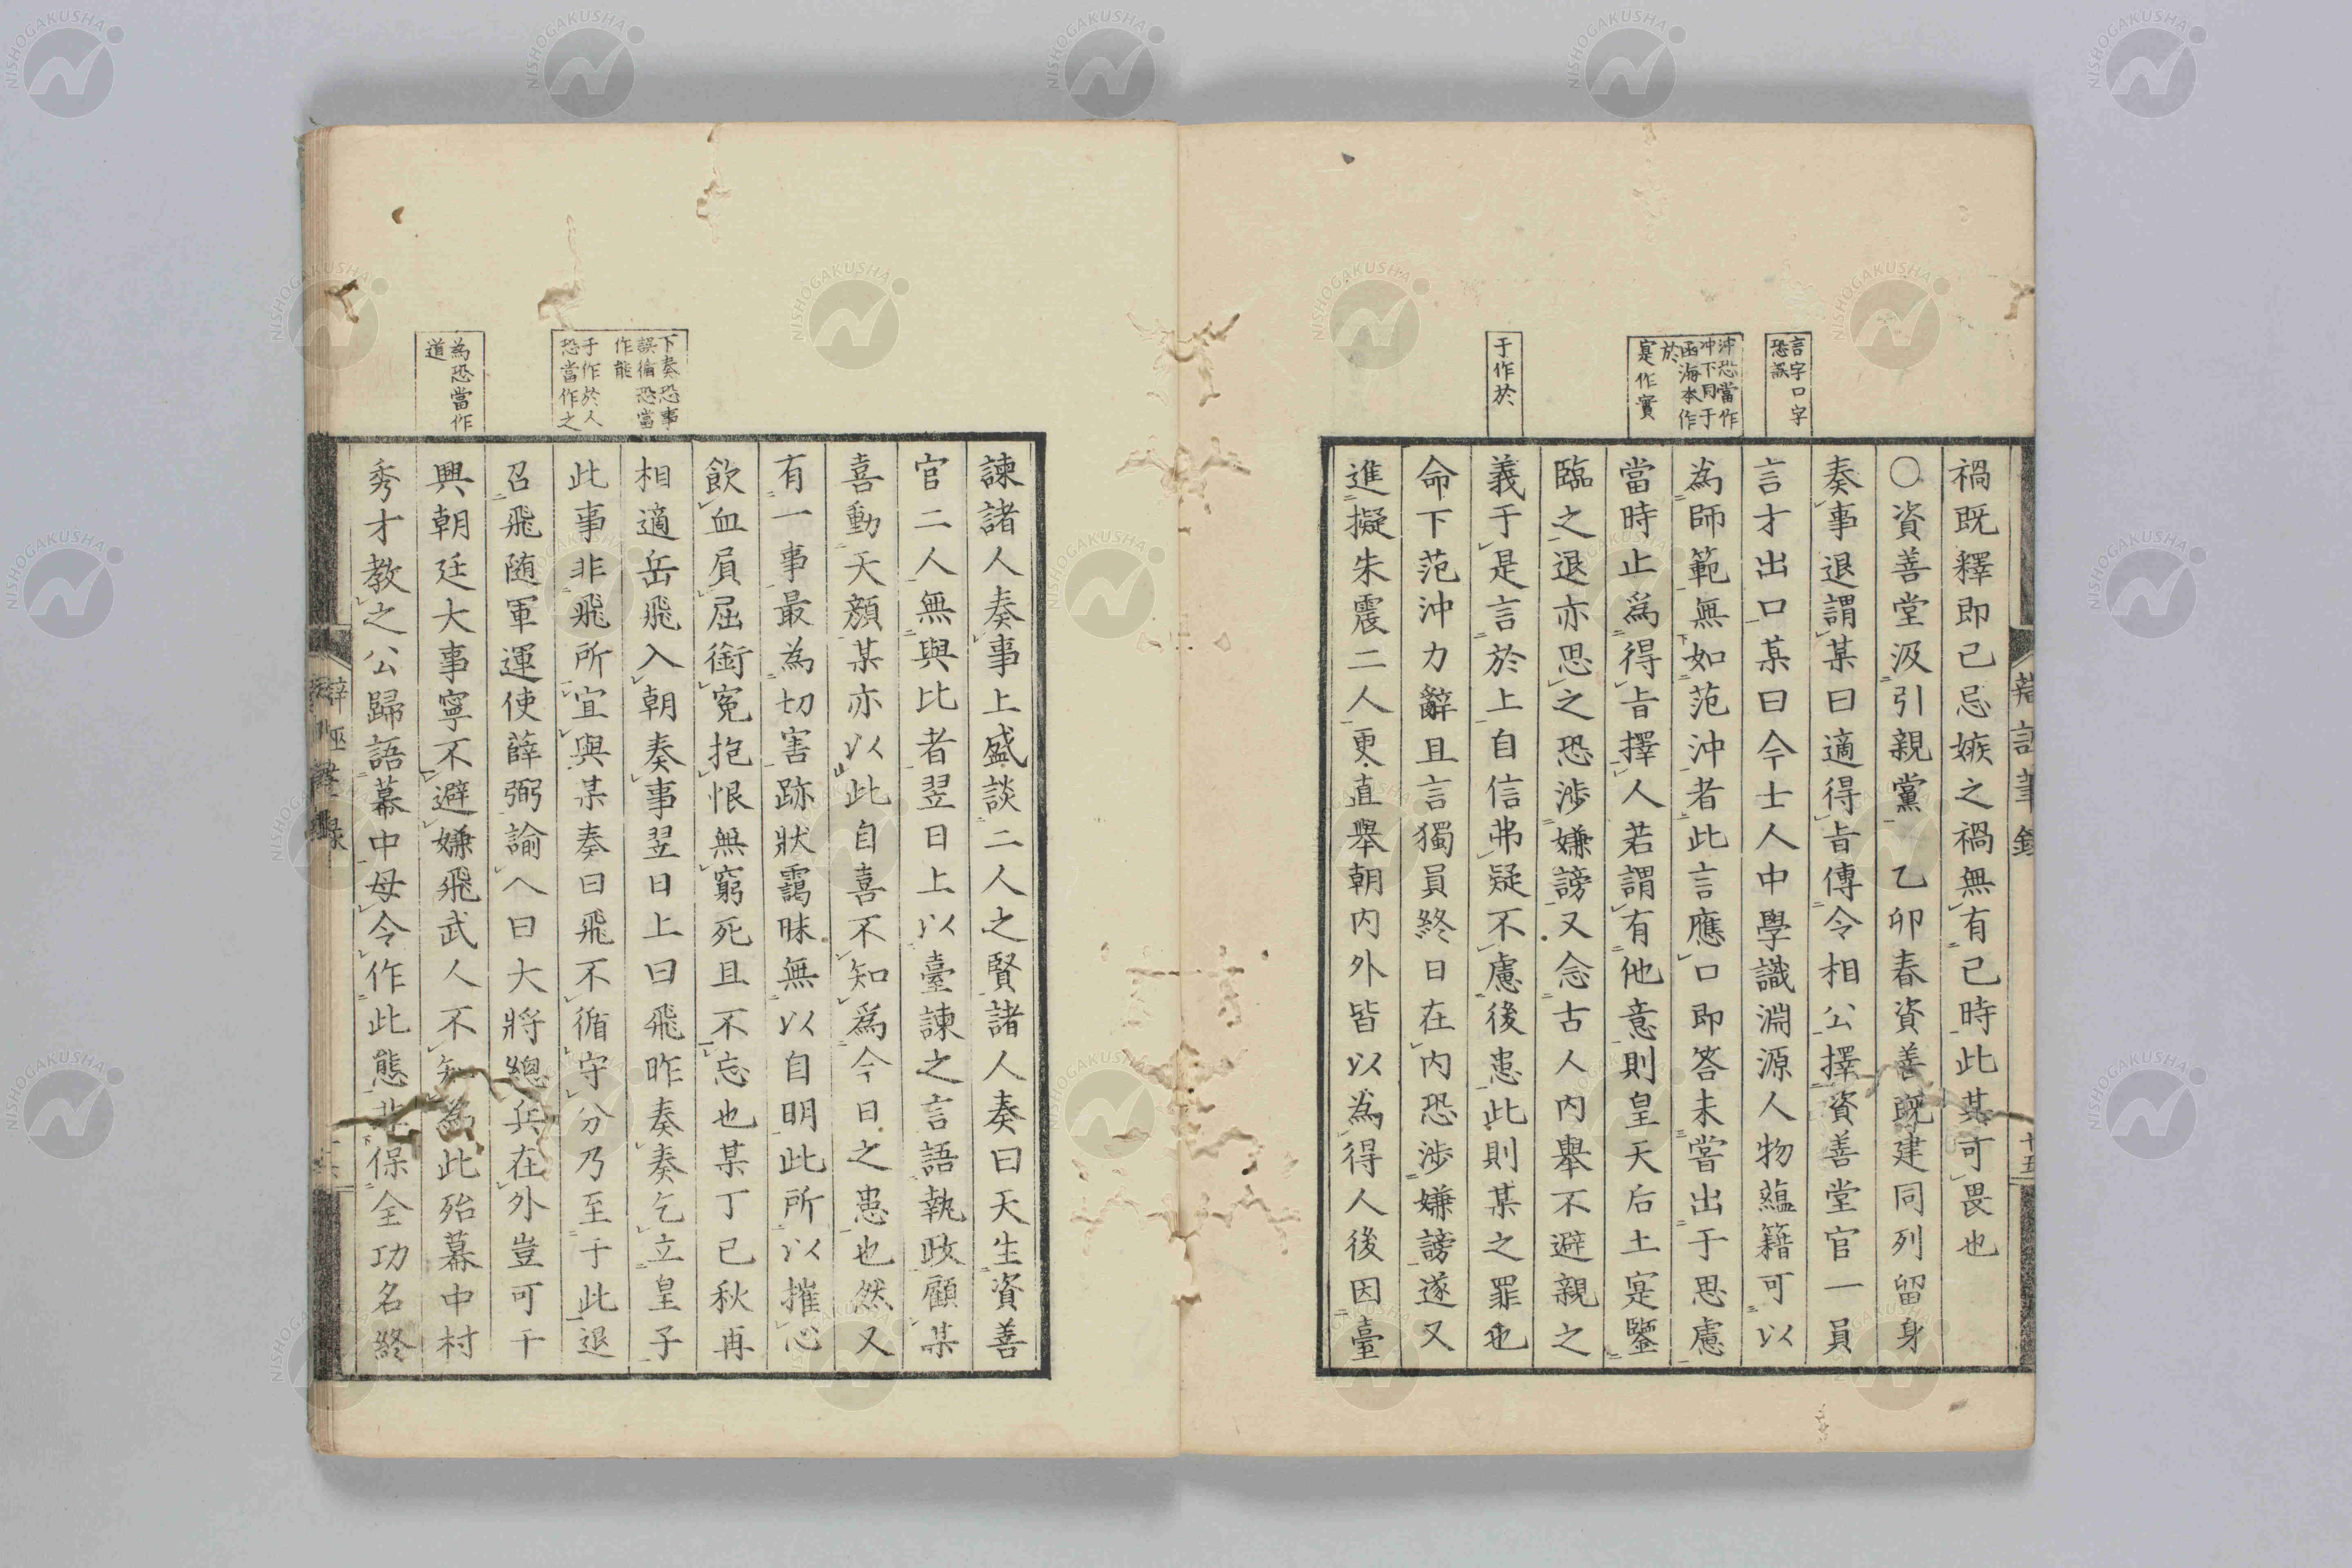 言字口字
恐誤
沖恐當作
冲下同于
函海本作
於
寔作實
于作於
禍既釋即己忌嫉之禍無有已時此其可畏也
○資善堂汲引親黨 乙卯春資善既建同列留身
奏事退謂某曰適得旨傳令相公擇資善堂官一員
言才出口某曰今士人中學識淵源人物蘊籍可以
為師範無如范沖者此言應口即答未嘗出于思慮
當時止爲得旨擇人若謂有他意則皇天后土寔鑒
臨之退亦思之恐涉嫌謗又念古人内舉不避親之
義于是言於上自信弗疑不慮後患此則某之罪也
命下范沖力辭且言獨員終日在内恐涉嫌謗遂又
進擬朱震二人更直舉朝内外皆以為得人後因臺
十五
下奏恐事
誤脩恐當
作能
于作於人
恐當作之
為恐當作
道
諫諸人奏事上盛談二人之賢諸人奏曰天生資善
官二人無與比者翌日上以臺諫之言語執政顧某
喜動天顏某亦以此自喜不知爲今日之患也然又
有一事最為切害跡狀靄昧無以自明此所以摧心
飲血屓屈銜冤抱恨無窮死且不忘也某丁已秋再
相適岳飛入朝奏事翌日上曰飛昨奏奏乞立皇子
此事非飛所宜與某奏曰飛不循守分乃至于此退
召飛隨軍運使薛弼諭入曰大將總兵在外豈可干
興朝廷大事寧不避嫌飛武人不知為此殆幕中村
秀才教之公歸語幕中毋令作此態非保全功名終